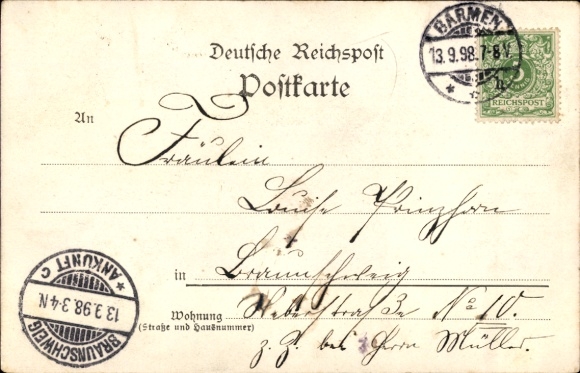 BARMEN
13.9.98.7-8V
5
REICHSPOST
Deutsche Reichspost
Postkarte
An
Fräulein
Louise Prinzhorn
in Braunschweig
Wohnung
(Straße und Hausnummer)
Weberstraße No 10.
z. Z. bei Herrn Müller.
BRAUNSCHWEIG
13.9.98.3-4N.
* ANKUNFT C